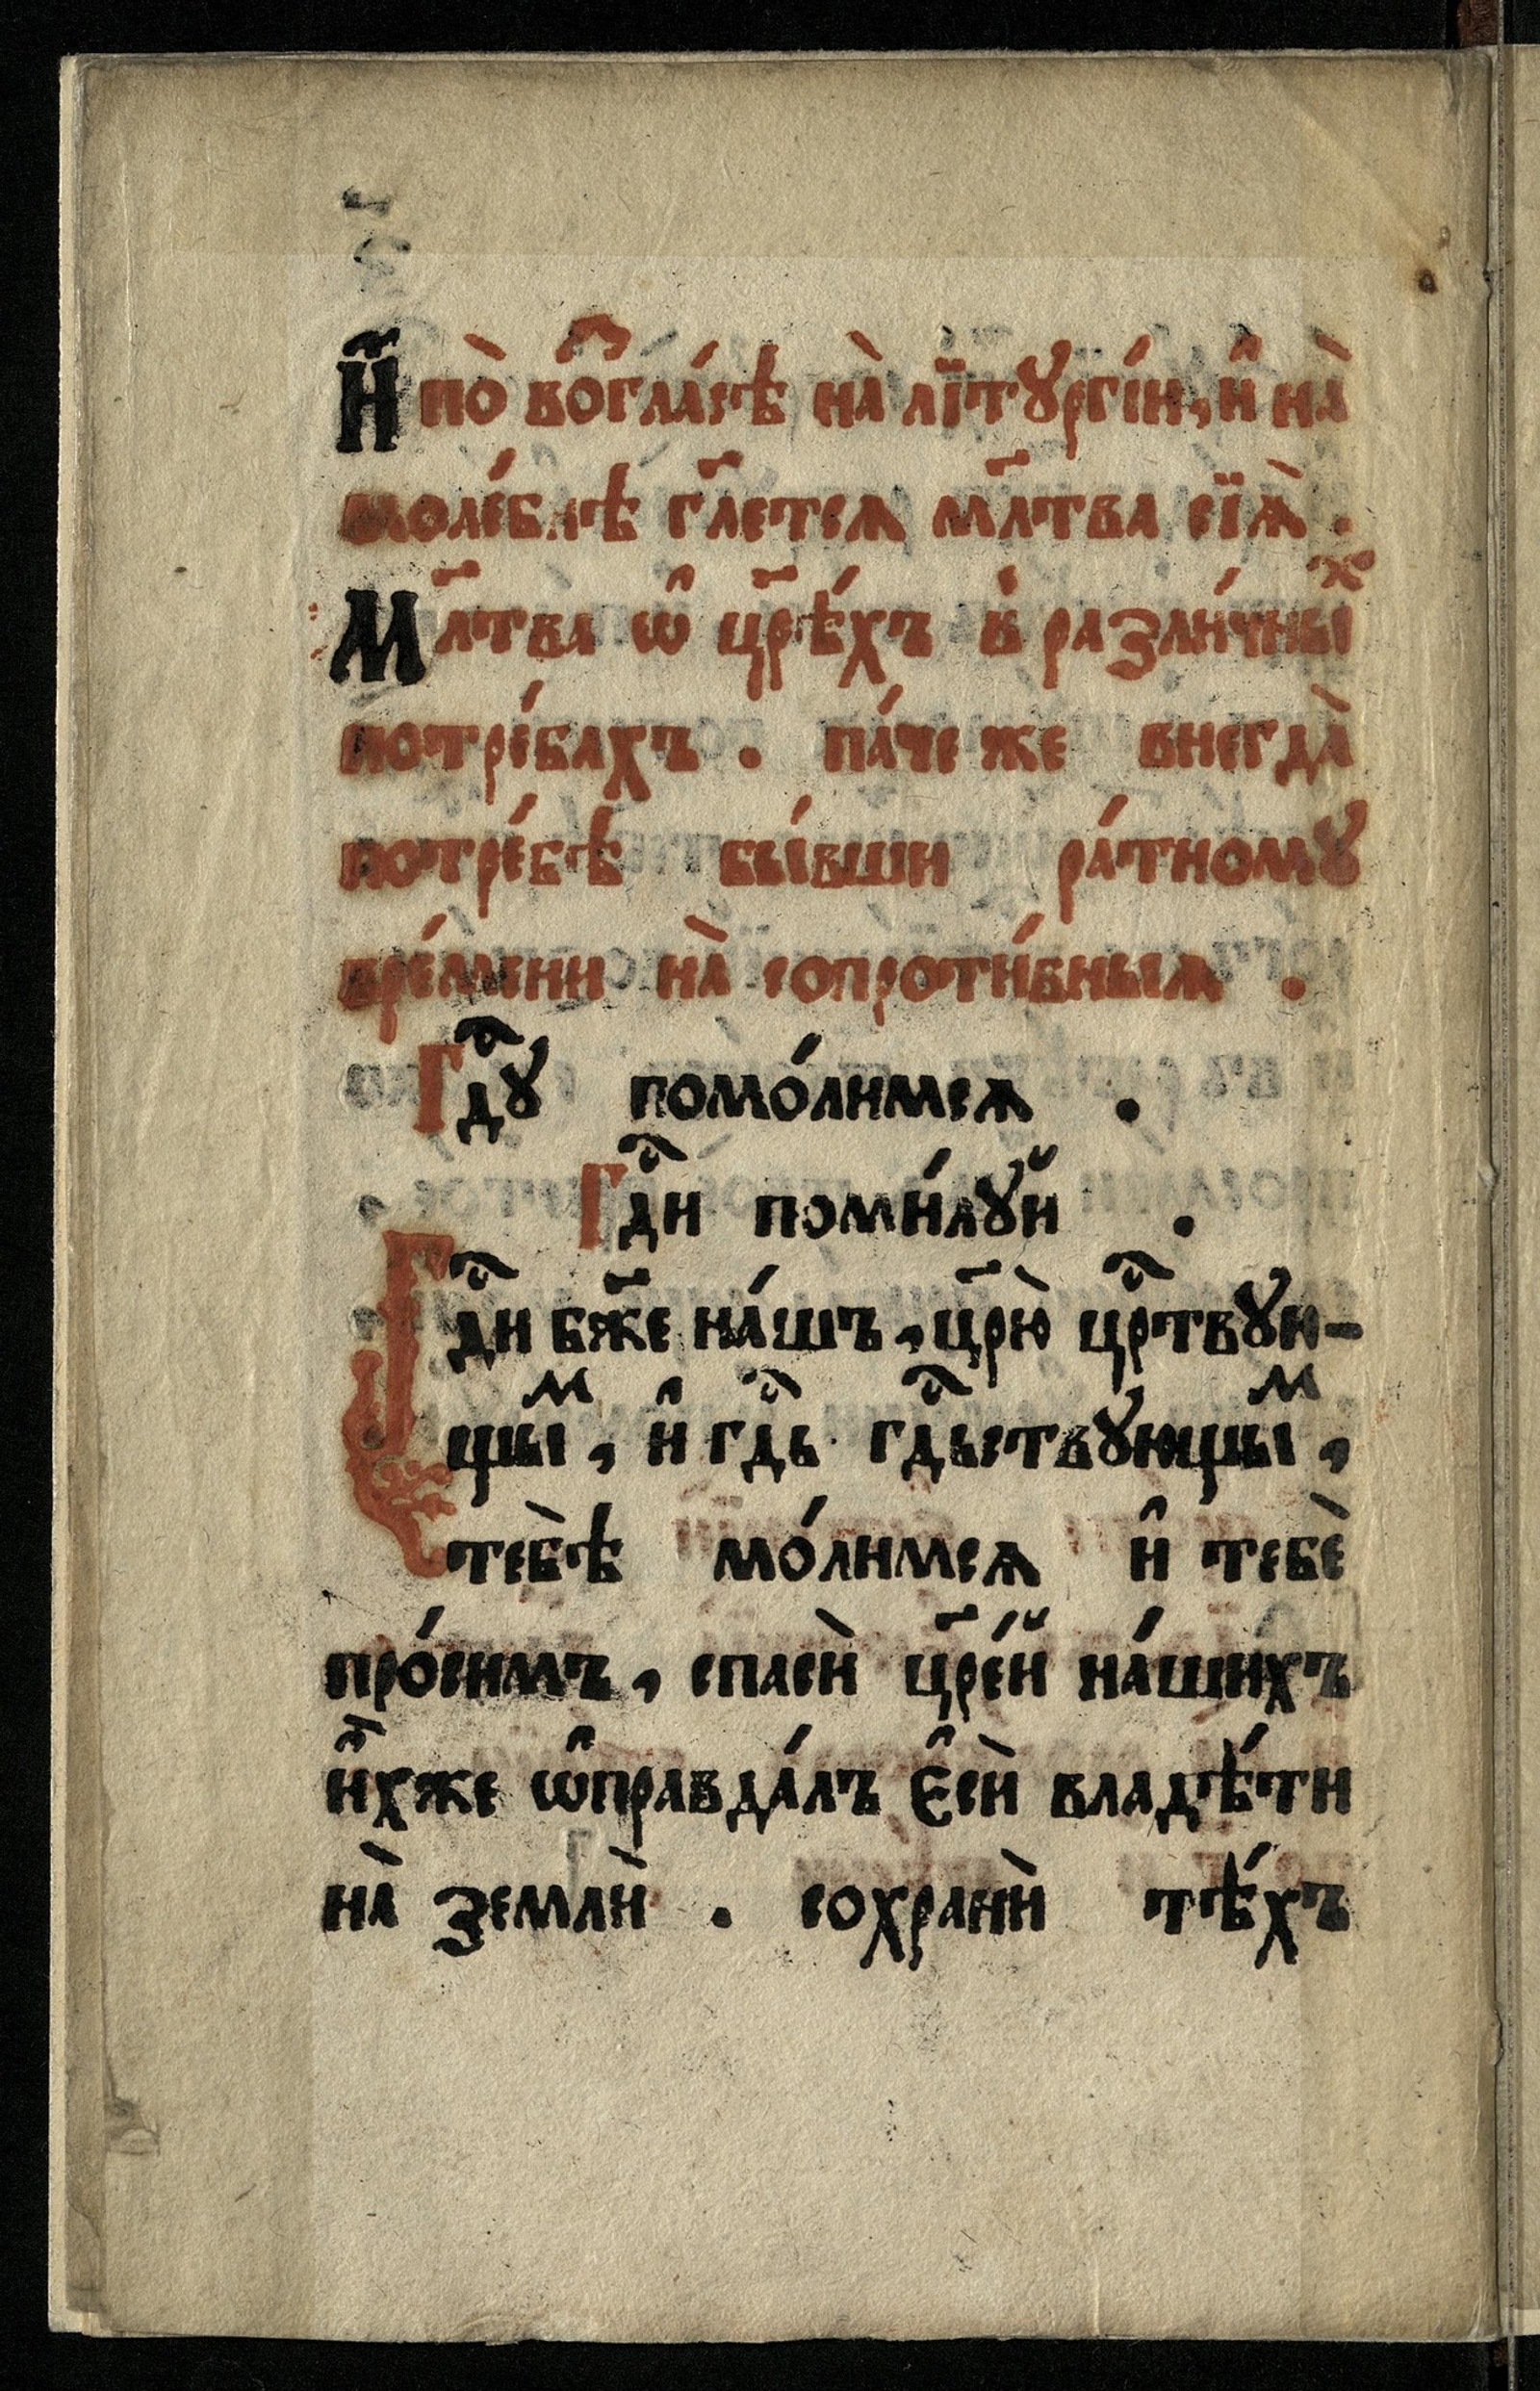 И҆ по̀ во̑гла́сѣ на̀ лїтꙋргі́и, и҆ на̀
моле́бнѣ гл҃етсѧ мл҃тва сїѧ̀ .
Мл҃тва ѡ҆ цр҃ѣ́хъ в разли́чныⷯ
потре́бахъ . па́че же внегда̀
потре́бѣ бы́вши ра́тномꙋ
вре́мени на̀ сопроти́вныѧ .
Гдⷭ҇ꙋ помо́лимсѧ .
Гдⷭ҇и поми́лꙋй .
Гдⷭ҇и бж҃е на́шъ, цр҃ю̀ црⷭ҇твꙋю-
щыⷨ, и҆ гдⷭ҇ь гдⷭ҇ьствꙋющыⷨ,
тебѣ̀ мо́лимсѧ и҆ тебѐ
про́симъ, спасѝ цр҃е́й на́шихъ
и҆́хже ѡ҆правда́лъ є҆сѝ владѣ́ти
на̀ землѝ . сохранѝ тѣ́хъ